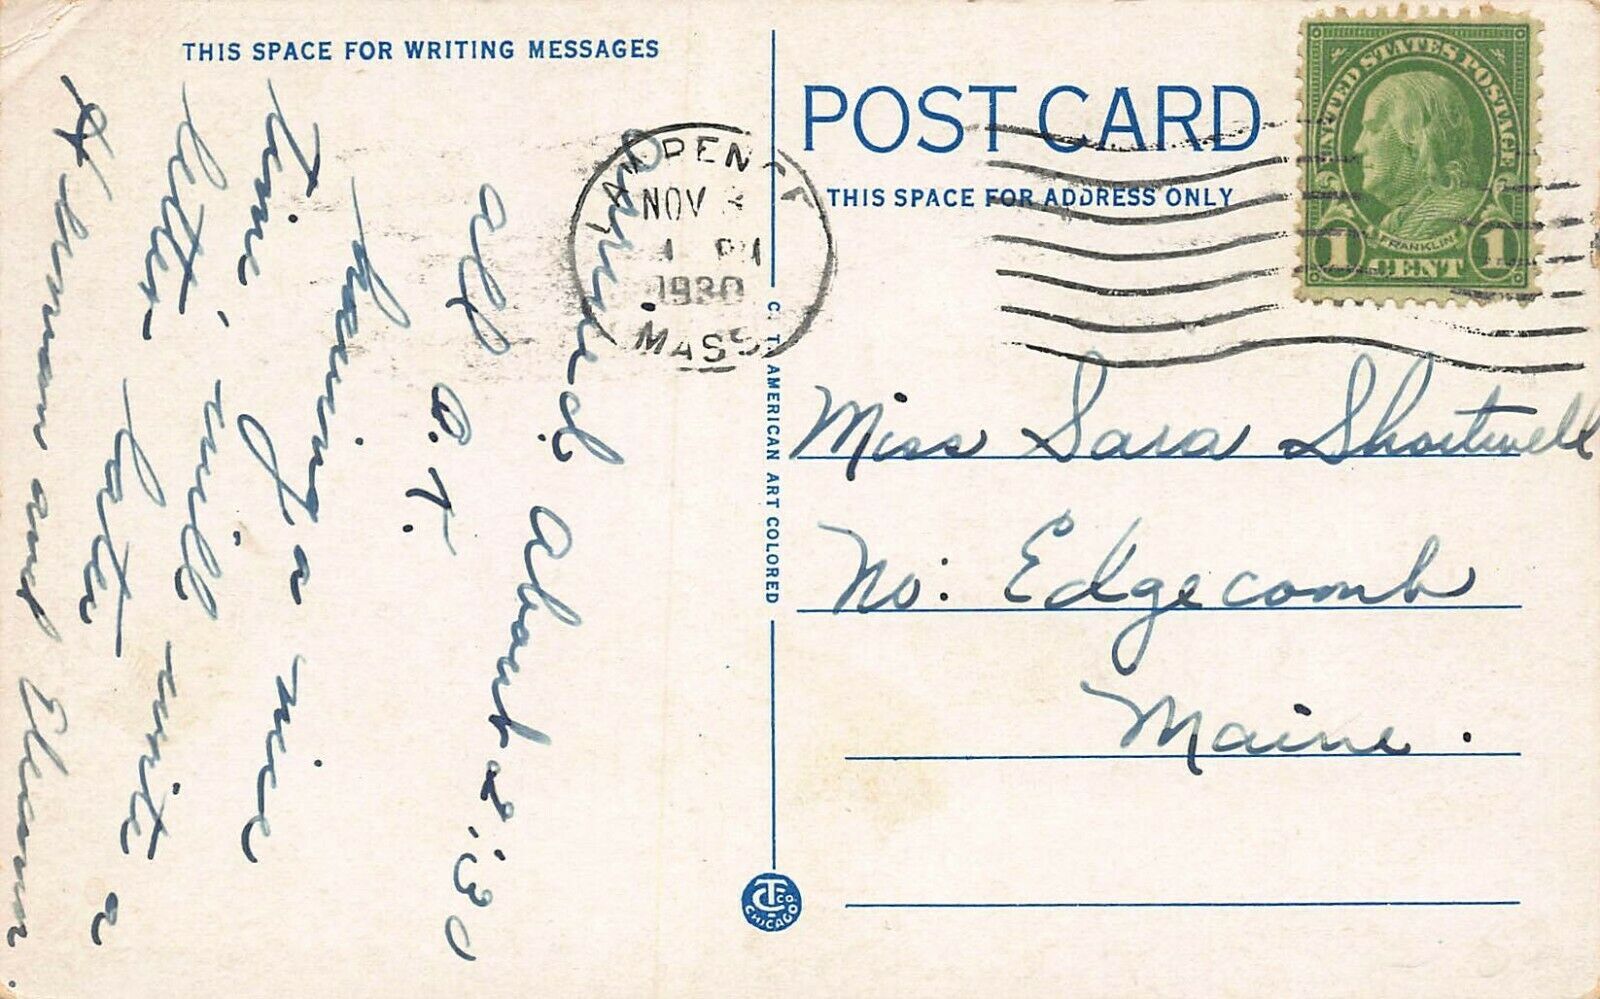 THIS SPACE FOR WRITING MESSAGES
Arrived about 2:30
all O.K.
having a nice
time, will write a
letter later
Herman and Eleanor.
LAWRENCE
NOV 3
1 PM
1930
MASS
POST CARD
THIS SPACE FOR ADDRESS ONLY
UNITED STATES POSTAGE
FRANKLIN
1 CENT 1
C. T. AMERICAN ART COLORED
Miss Sara Shortwell
No: Edgecomb
Maine.
CT CO
CHICAGO